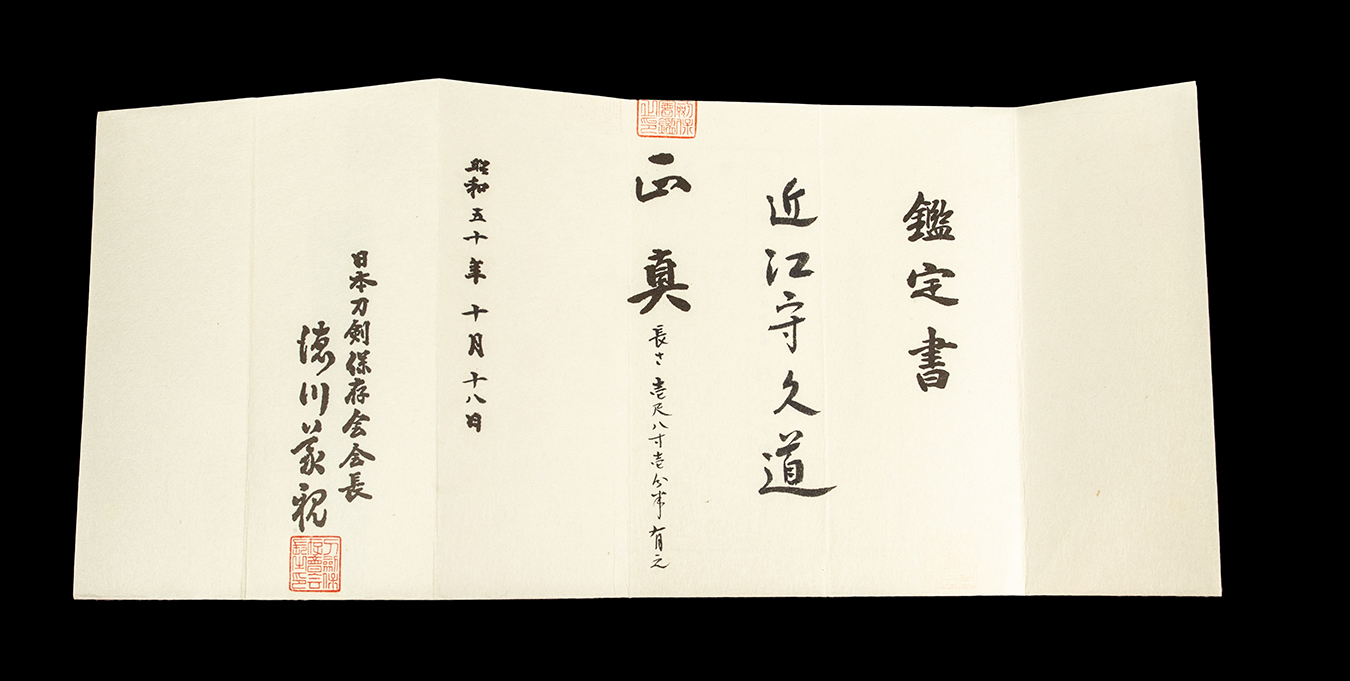 鑑定書
近江守久道
正真
長さ壱尺八寸壱分半有之
昭和五十年十月十八日
日本刀剣保存会会長
徳川義親